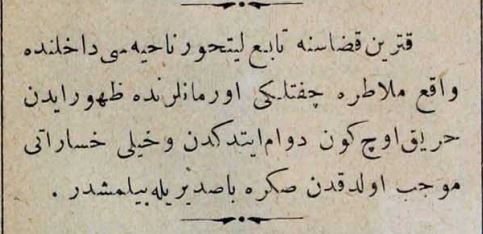 قترین قضاسنه تابع لیتحور ناحیه‌سی داخلنده
واقع ملاطره چفتلیکی اورمانلرنده ظهور ایدن
حریق اوچ کون دوام ایتدکدن و خیلی خساراتی
موجب اولدقدن صکره باصدیریله بیلمشدر .